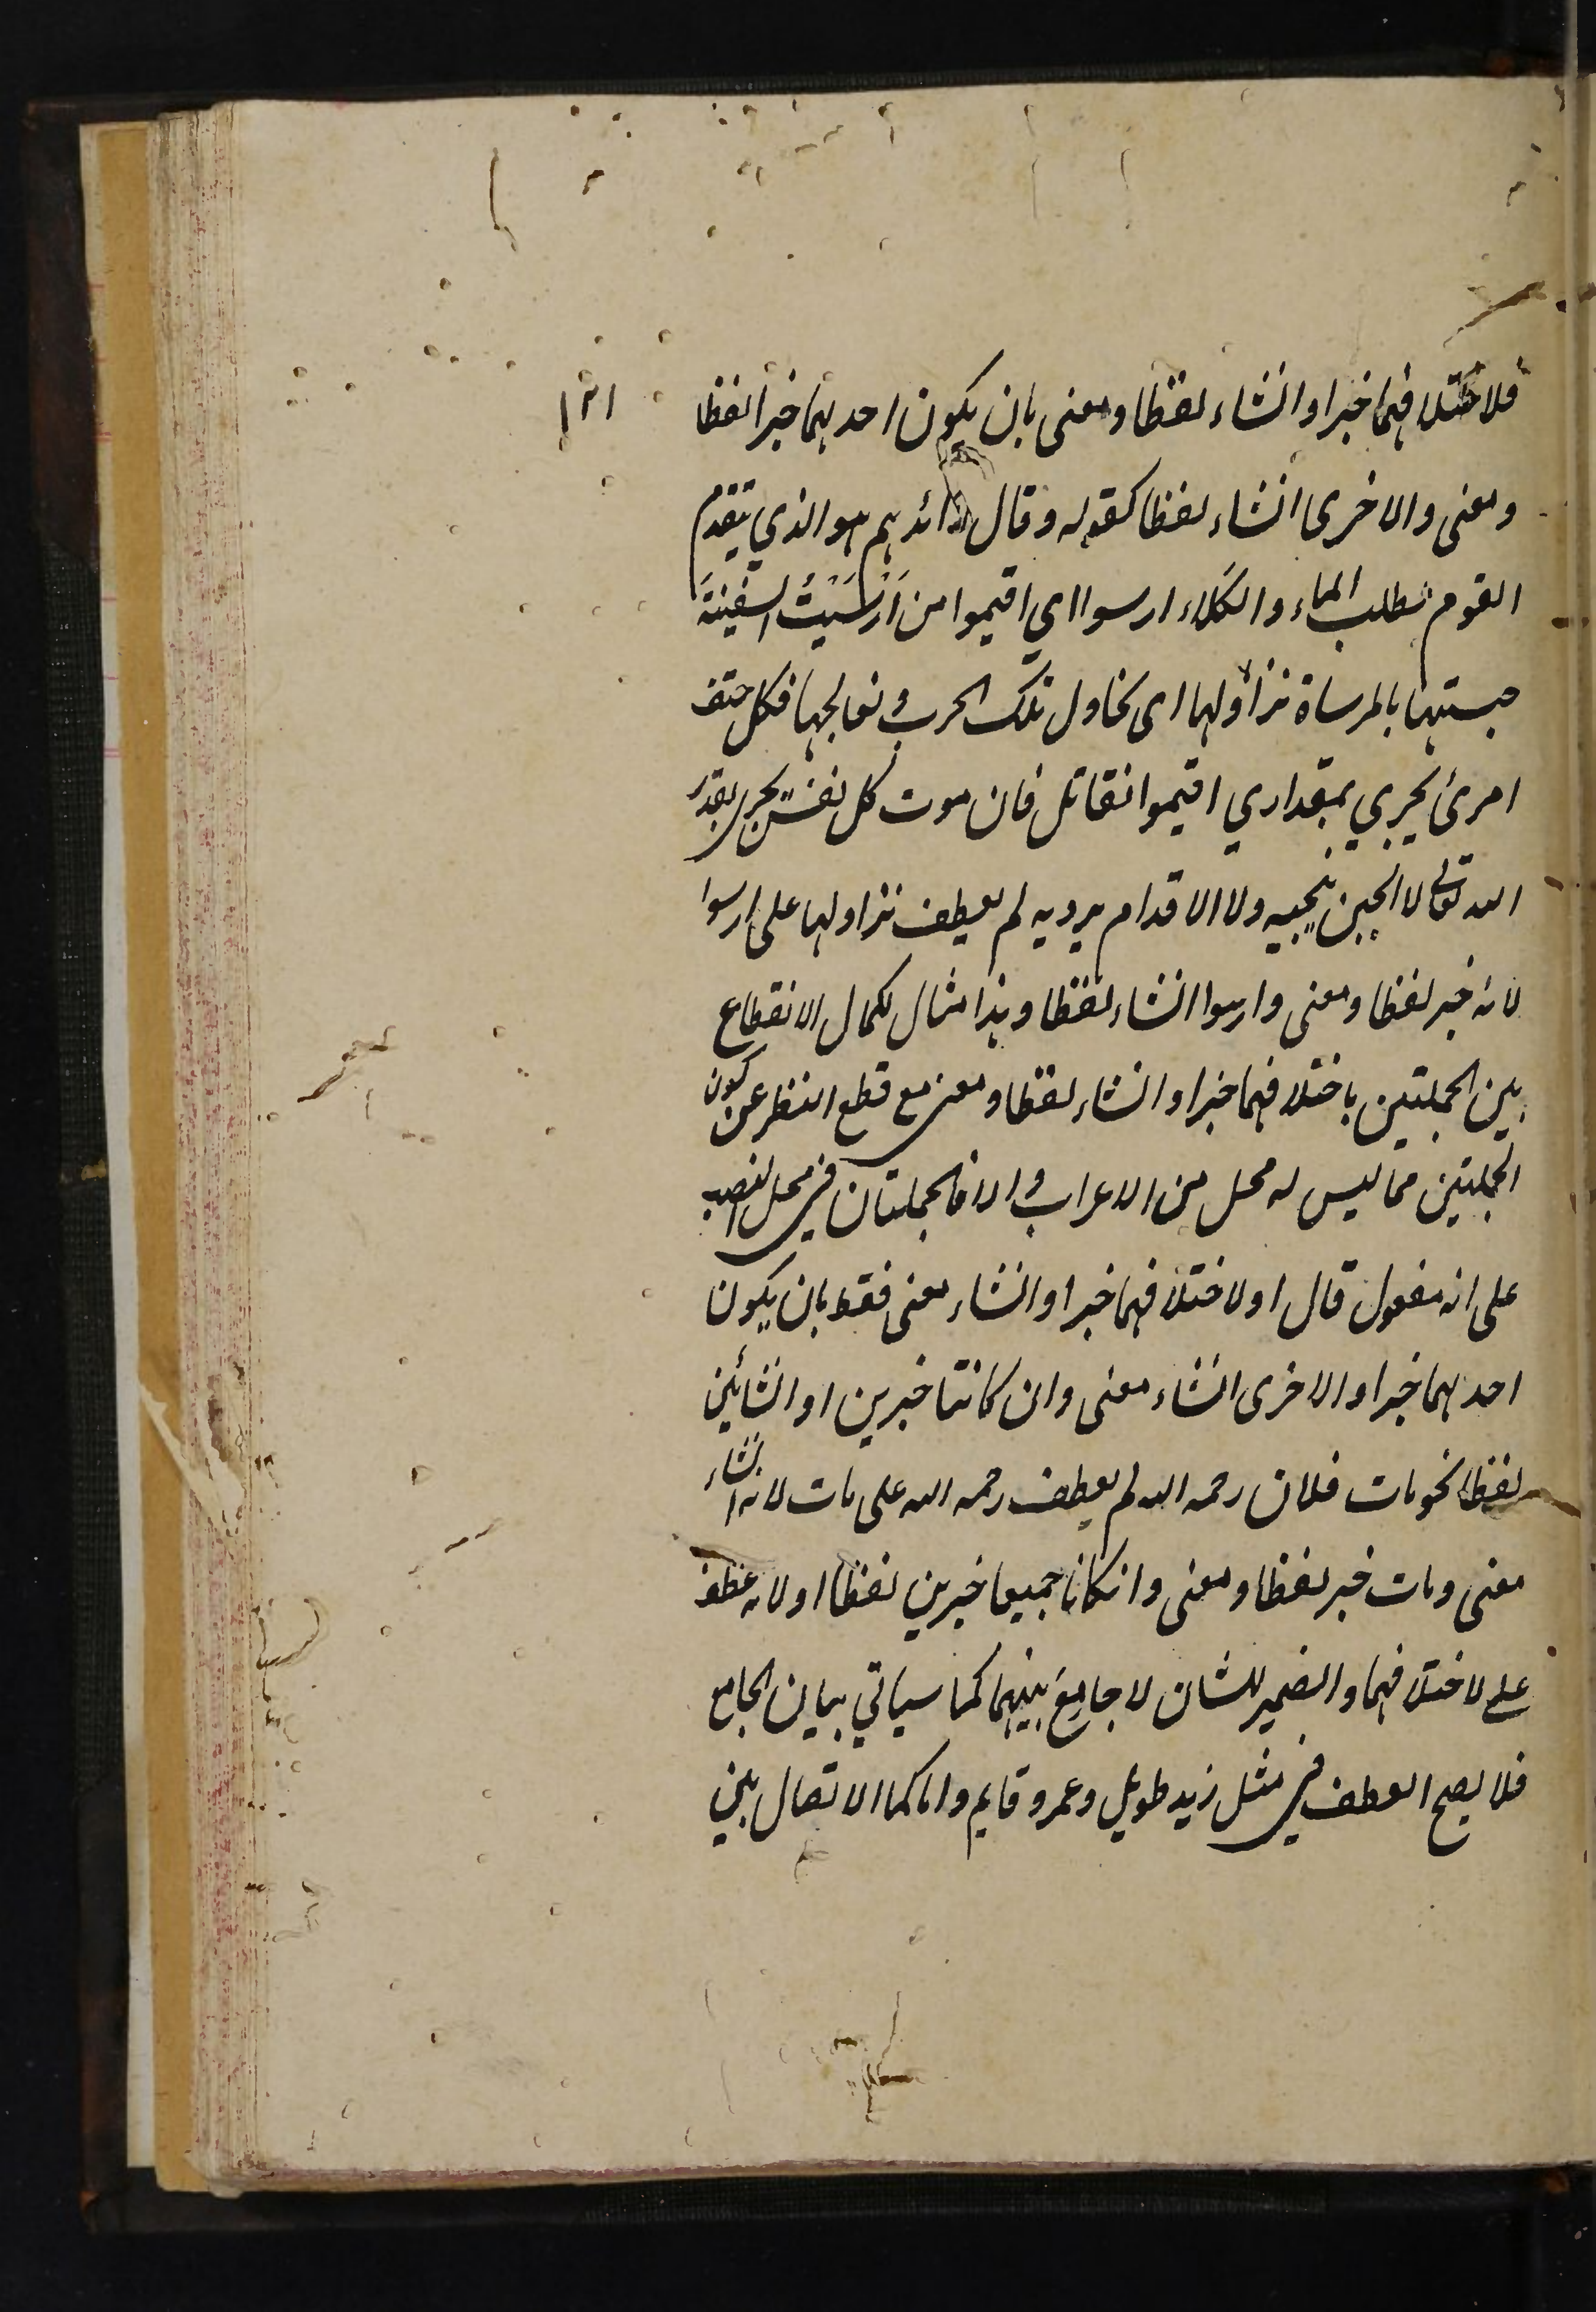 فلاختلافهما خبرا وانشاء لفظا ومعنى بان يكون احدىهما خبرا لفظا
ومعنى والاخرى انشاء لفظا كقوله وقال رائدهم هو الذي يتقدم
القوم لطلب الماء والكلاء ارسوا اي اقيموا من اَرْسَيْتُ السفينةَ
حبستها بالمرساة نزاولها اى نحاول تلك الحرب ونعالجها فكل حتف
امرئ يجري بمقداري اقيموا نقاتل فان موت كل نفس يجري بقدر
الله تعالى لا الجبن ينجيه ولا الاقدام يرديه لم يعطف نزاولها على ارسوا
لانه خبر لفظا ومعنى وارسوا انشاء لفظا وهذا مثال لكمال الانقطاع
بين الجملتين باختلافهما خبرا وانشاء لفظا ومعنى مع قطع النظر عن كون
الجملتين مما ليس له محل من الاعراب والا فالجملتان في محل النصب
على انه مفعول قال او لاختلافهما خبرا وانشاء معنى فقط بان يكون
احدىهما خبرا والاخرى انشاء معنى وان كانتا خبرين او انشائين
لفظا نحو مات فلان رحمه الله لم يعطف رحمه الله على مات لانه انشاء
معنى ومات خبر لفظا ومعنى وانكانا جميعا خبرين لفظا او لانه عطف
على لاختلافهما والضمير للشان لا جامِعَ بينهما كما سياتي بيان الجامع
فلا يصح العطف في مثل زيد طويل وعمرو قايم واما كمال الاتصال بين